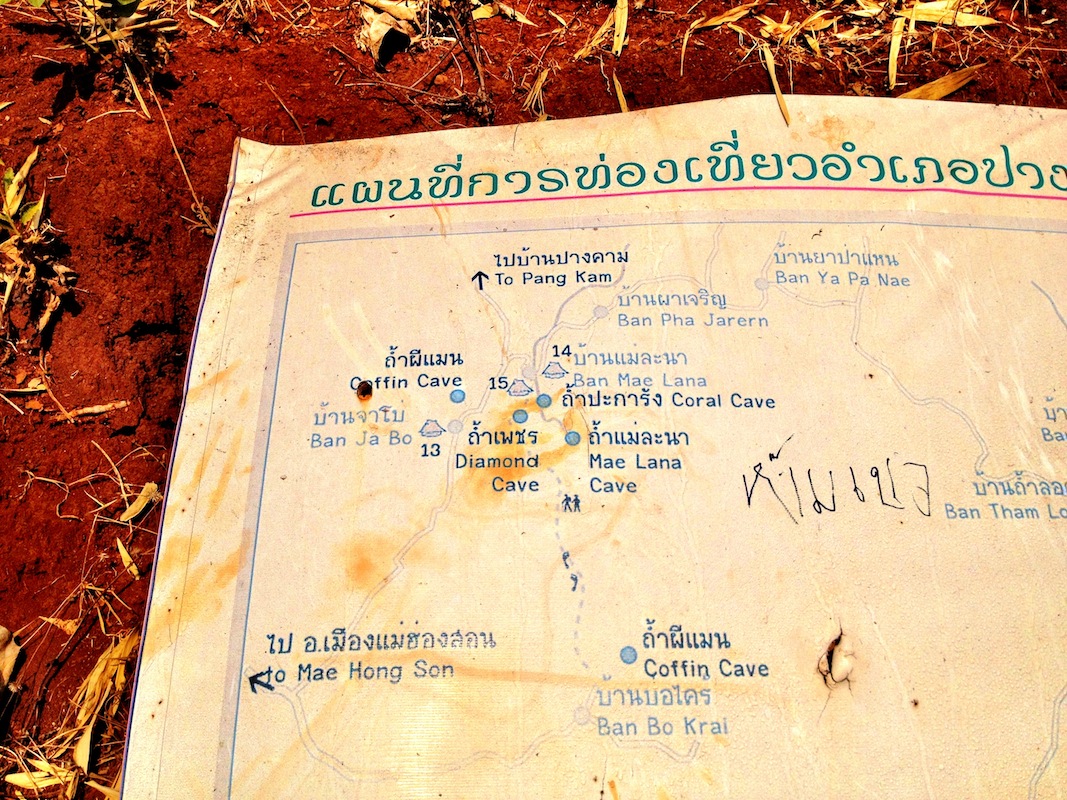 แผนที่การท่องเที่ยวอำเภอปาง
ไปบ้านปางคาม
To Pang Kam
บ้านยาป่าแหน
Ban Ya Pa Nae
บ้านผาเจริญ
Ban Pha Jarern
14
บ้านแม่ละนา
Ban Mae Lana
ถ้ำผีแมน
Coffin Cave
15
ถ้ำปะการัง Coral Cave
บ้านจาโบ่
Ban Ja Bo
13
ถ้ำเพชร
Diamond
Cave
ถ้ำแม่ละนา
Mae Lana
Cave
บ้า
Ban
บ้านถ้ำลอด
Ban Tham Lo
ไป อ.เมืองแม่ฮ่องสอน
to Mae Hong Son
ถ้ำผีแมน
Coffin Cave
บ้านบ่อไคร้
Ban Bo Krai